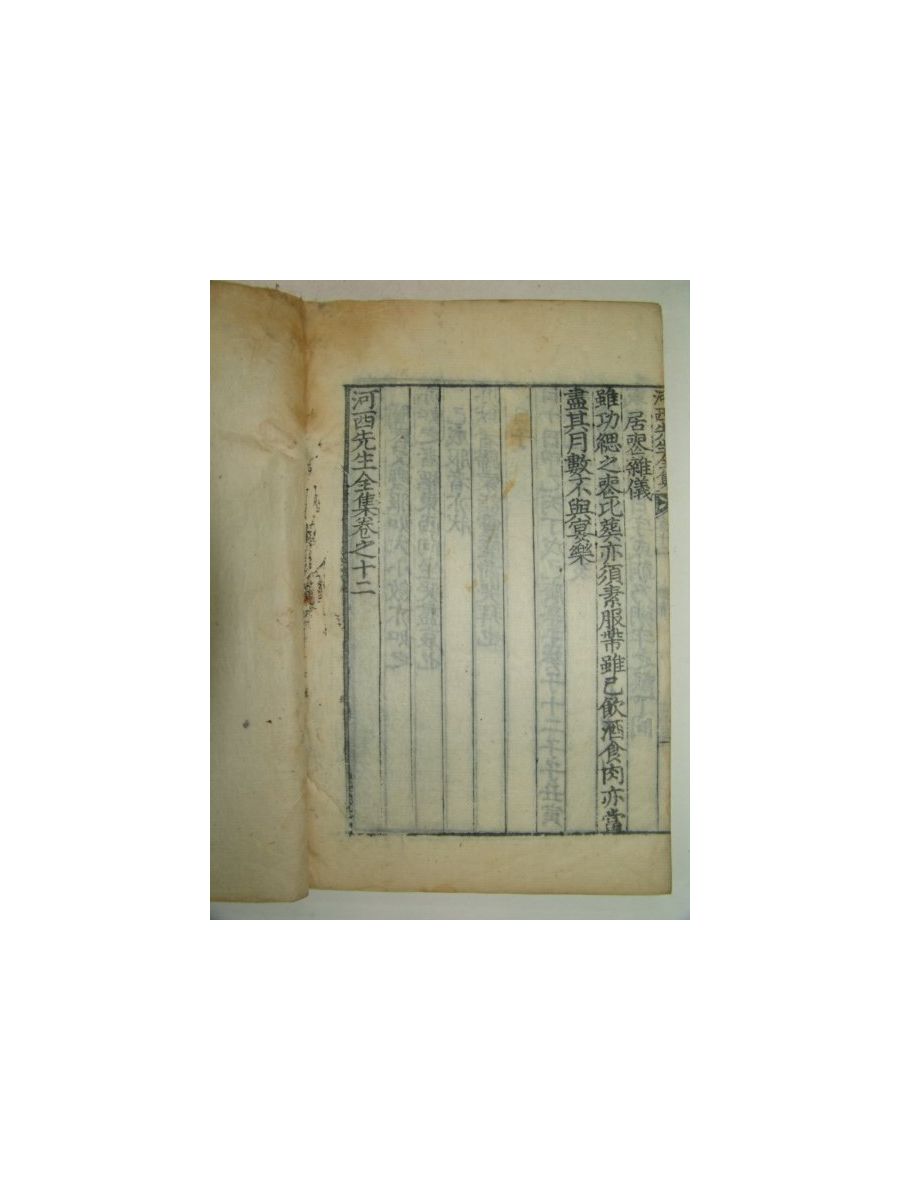 河西先生全集卷
居喪雜儀
雖功緦之喪比葬亦須素服帶雖已飲酒食肉亦當
盡其月數不與宴樂
河西先生全集卷之十二